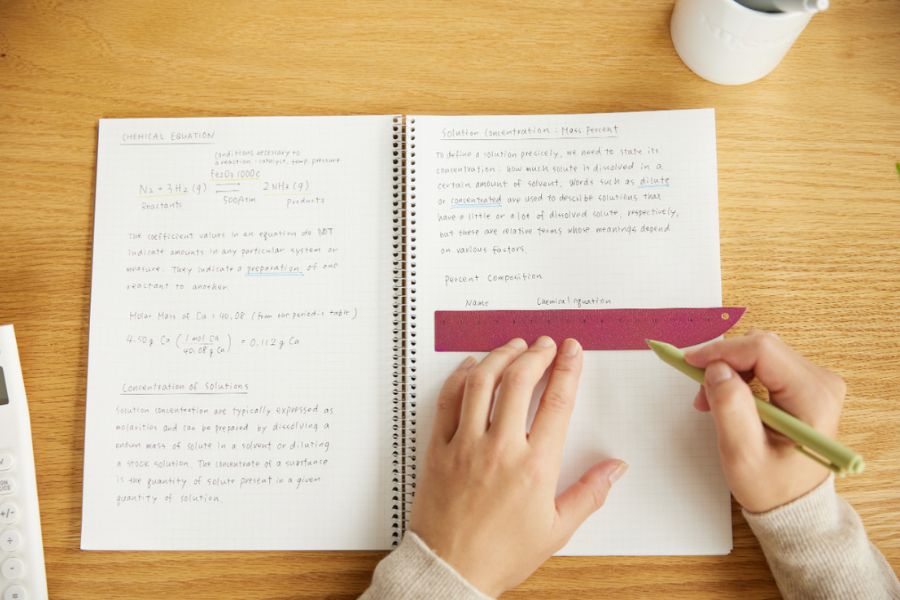 CHEMICAL EQUATION
conditions necessary to
a reaction: catalyst, temp, pressure
Fe2O3 1000c
N2 + 3H2 (g) 2NH3 (g)
Reactants 500Atm products
The coefficient values in an equation do NOT
indicate amounts in any particular system or
measure. They indicate a preparation, of one
reactant to another.
Molar Mass of Ca = 40.08 (from our periodic table)
4.50g Ca (1 mol Ca / 40.08g Ca) = 0.112g Ca
Concentration of Solutions
Solution concentration are typically expressed as
molarities and can be prepared by dissolving a
mass of solute in a solvent or diluting
a stock solution. The concentrate of a substance
is the quantity of solute present in a given
quantity of solution.
Solution Concentration: Mass Percent
To define a solution precicely, we need to state its
concentration: how much solute is dissolved in a
certain amount of solvent. Words such as dilute
or concentrated are used to describe solutions that
have a little or a lot of dissolved solute, respectively,
but these are relative terms whose meanings depend
on various factors.
Percent Composition
Name Chemical equation